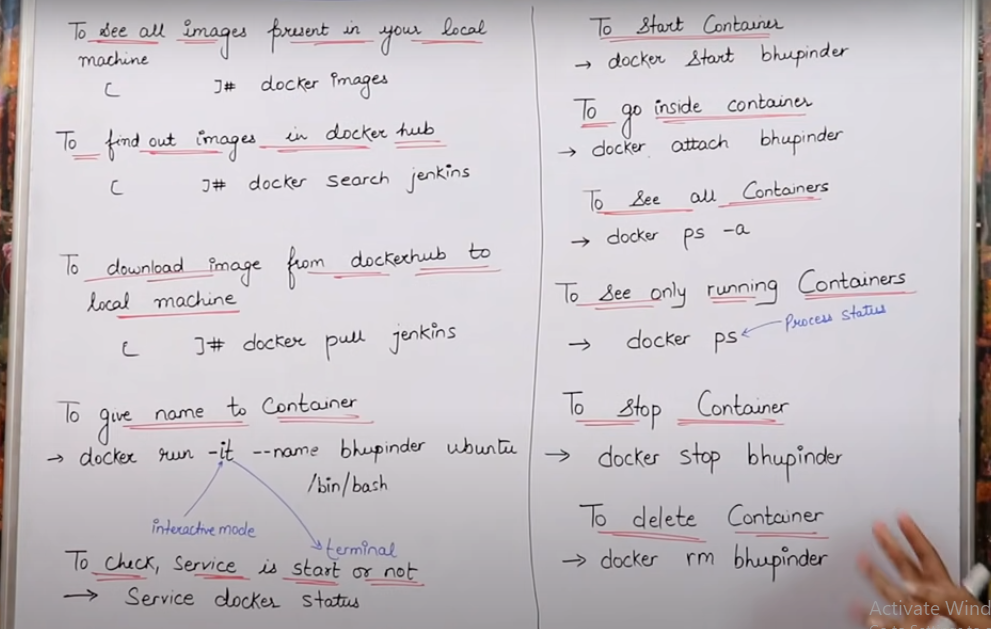 To see all images present in your local
machine
[ ]# docker images
To find out images in docker hub
[ ]# docker search jenkins
To download image from dockerhub to
local machine
[ ]# docker pull jenkins
To give name to Container
→ docker run -it --name bhupinder ubuntu
/bin/bash
interactive mode
terminal
To check, service is start or not
→ Service docker status
To Start Container
→ docker start bhupinder
To go inside container
→ docker attach bhupinder
To see all Containers
→ docker ps -a
To see only running Containers
→ docker ps
Process status
To stop Container
→ docker stop bhupinder
To delete Container
→ docker rm bhupinder
Activate Wind